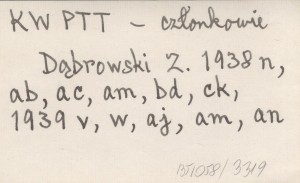 KW PTT – członkowie
Dąbrowski Z. 1938 n,
ab, ac, am, bd, ck,
1939 v, w, aj, am, an
/3319